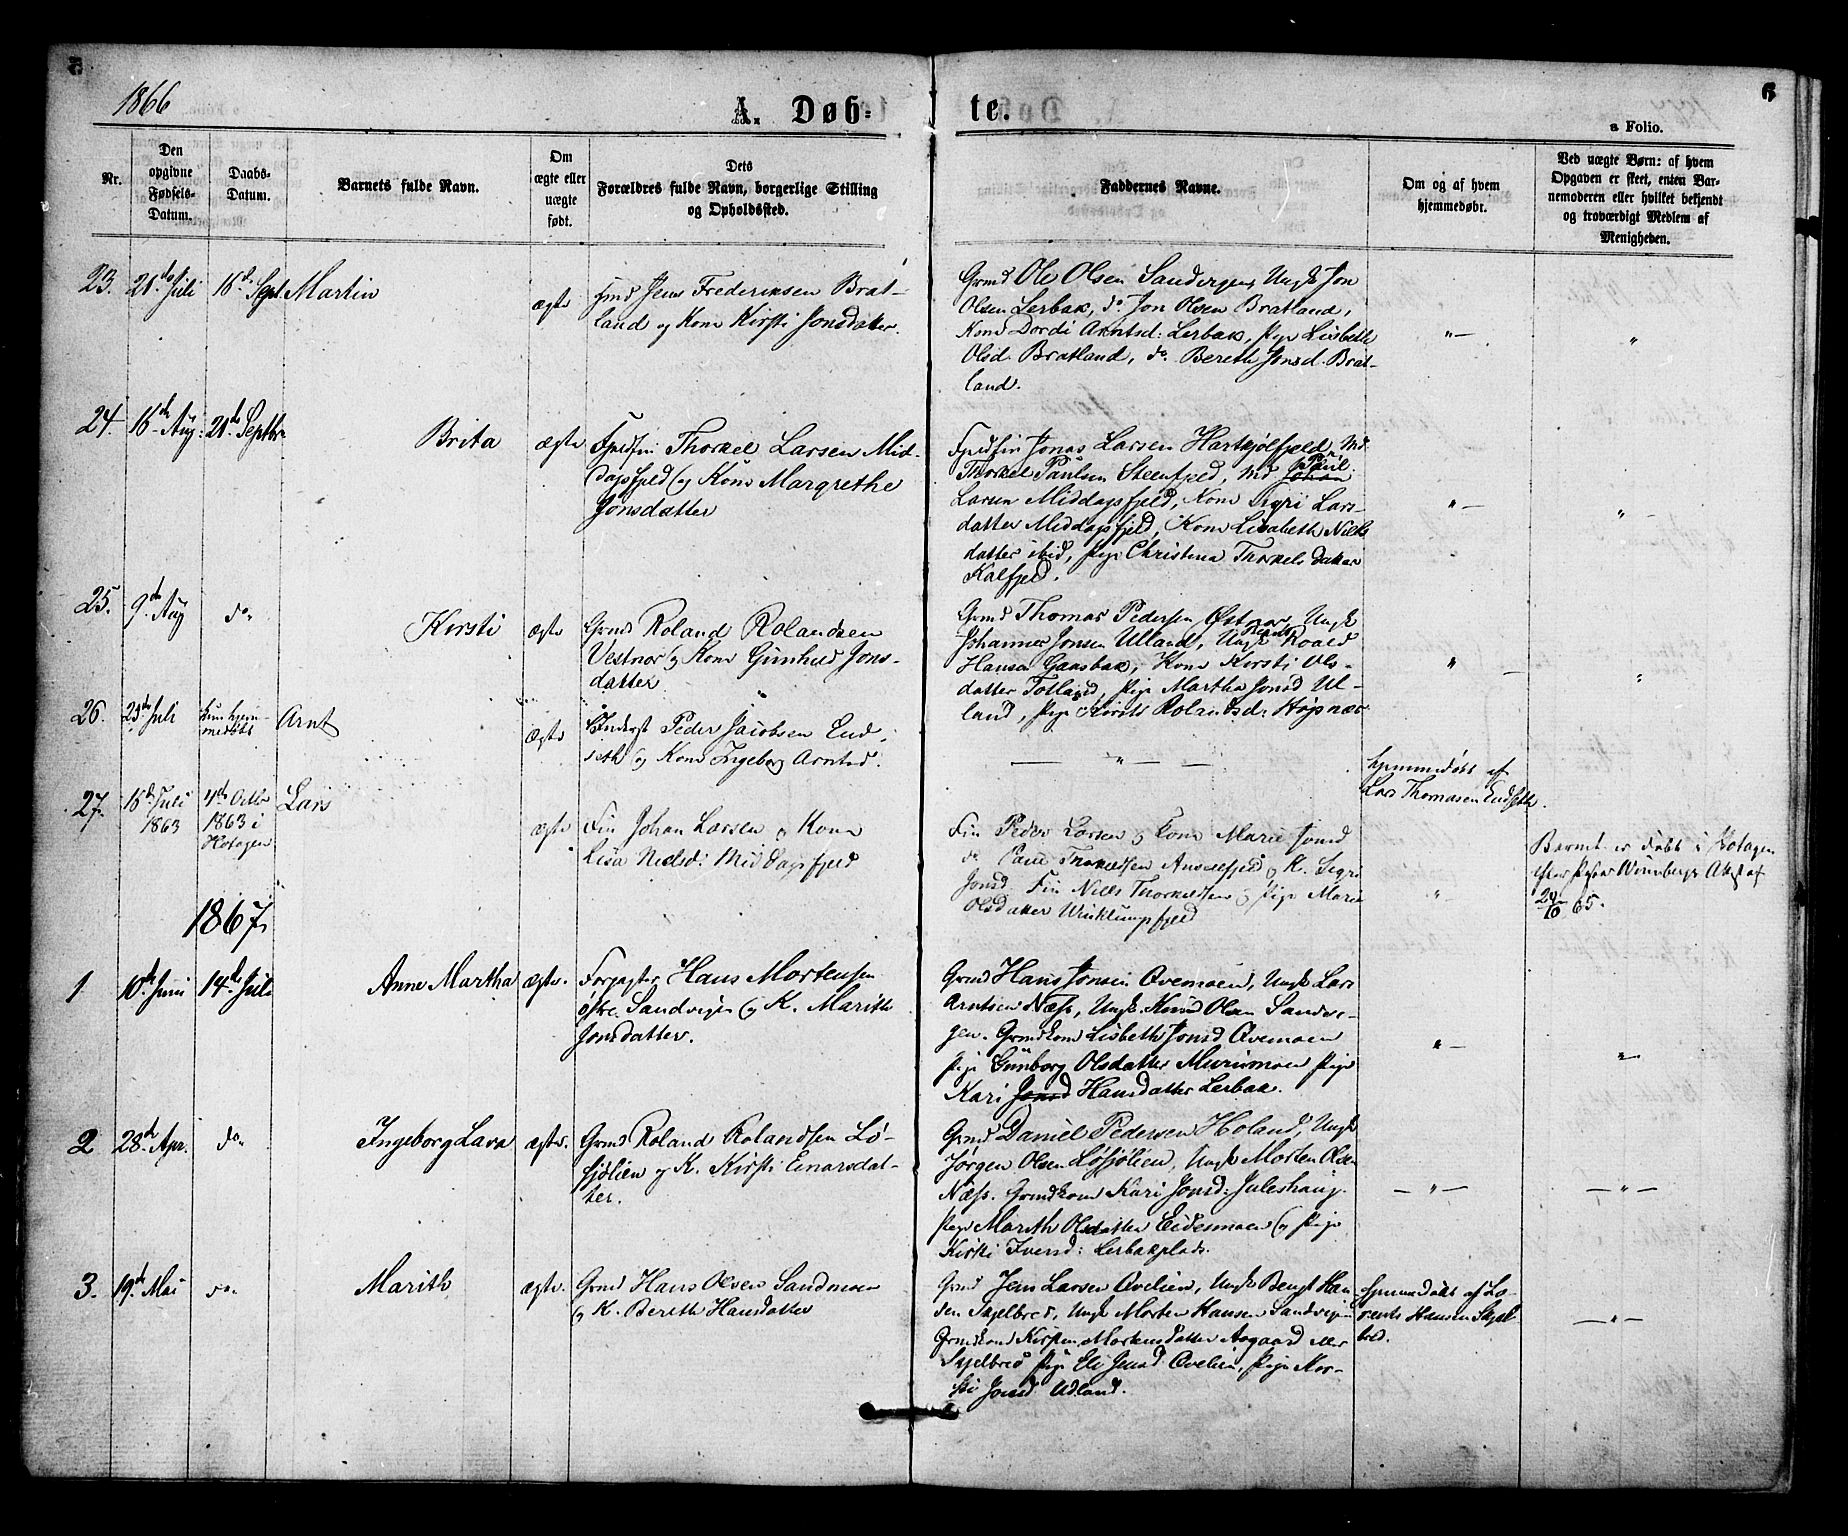 5
6
1866
A. Døb-
te.
a Folio.
Nr.
Den opgivne Fødsels-Datum.
Daabs-Datum.
Barnets fulde Navn.
Om ægte eller uægte født.
Dets Forældres fulde Navn, borgerlige Stilling og Opholdssted.
Faddernes Navne.
Om og af hvem hjemmedøbt.
Ved uægte Børn: af hvem Opgaven er skeet, enten Barnemoderen eller hvilket bekjendt og troværdigt Medlem af Menigheden.
23. 21de Juli 16de Sept. Martin
ægte
Jens Frederiksen Brat-
land og Kone Kirsti Jonsdatter.
Grmd Ole Olsen Sandvigen, Ungk Jon
Olsen Lerbak, do Jon Olsen Bratland,
Kone Dordi Arntsd: Lerbak, Pige Lisbeth
Olsd. Bratland, do. Bereth Jonsd. Brat-
land.
24. 16de Aug: 21de Septbr
Brita
ægte
Fjeldfin Thorkel Larsen Mid-
dagsfjeld og Kone Margrethe
Jonsdatter
Fjeldfin Jonas Larsen Hartkjølfjeld, Md.
Thorkel Paulsen Steenfjeld, Md Johan Paul
Larsen Middagsfjeld, Kone Sigri Lars-
datter Middagsfjeld, Kone Lisabeth Niels
datter ibid, Pige Christina Thorkelsdatter
Kalfjeld.
25. 9de Aug do
Kirsti
ægte
Grmd Roland Rolandsen
Vestnor og Kone Gunhild Jons-
datter
Grmd Thomas Pedersen Østnor, Ungk
Johannes Jonsen Ulland, Ungk Roald
Hansen Gaasbak, Kone Kirsti Ols-
datter Totland, Pige Martha Jonsd Ul-
land, Pige Kirsti Rolandsd: Højsnæs
26. 25de Juli kun hjem-
medøbt Arnt
ægte
Inderst Peder Jacobsen End-
seth og Kone Ingeborg Arntsd.
hjemmedøbt af
Lars Thomasen Endseth.
27. 16de Juli
1863
4de Octbr
1863 i
Hotagen
Lars
ægte
Fin Johan Larsen og Kone
Lisa Nielsd: Middagsfjeld
Fin Peder Larsen og Kone Marie Jonsd
do Paul Thorkildsen Ansettfjeld og K. Sigri
Jonsd. Fin Niels Thorkildsen og Pige Maria
Olsdatter Winklumpfjeld
Barnet er døbt i Hotagen
efter Pastor Winnbergs Attest af
29/10 65.
1867
1. 10de Juni 14de Juli
Anne Martha
ægte.
Forpagter Hans Mortensen
østre Sandvigen og K. Marith
Jonsdatter.
Grmd Hans Jonsen Ovemoen, Ungk Lars
Arntsen Næss, Ungk. Knud Olsen Sandvi-
gen. Grmdkone Lisbeth Jonsd Ovemoen
Pige Gunborg Olsdatter Murumoen Pige
Kari Jonsd Hansdatter Lerbak.
2 28de Apr. do.
Ingeborg Lava
ægte.
Grmd Roland Rolandsen Lø-
fsjølien og K. Kirsti Einarsdat-
ter.
Grmd Daniel Pedersen Holand, Ungk
Jørgen Olsen Løfsjølien, Ungk Morten Olsen
Næss. Grmdkone Kari Jonsd: Juleshaug.
Pige Marith Olsdatter Eidesmoen og Pige
Kirsti Iversd: Lerbakplads.
3. 19de Mai do.
Marith
ægte.
Grmd Hans Olsen Sandmoen
og K. Bereth Hansdatter
Grmd Jens Larsen Ovelien, Ungk Bengt Han-
sen Skjelbred, Ungk Morten Hansen Sandvigen
Grmdkone Kirsten Mortensdatter Aagaard
Skjelbred Pige Eli Jensd Ovelien, Pige Kir-
sti Jonsd Udland.
hjemmedøbt af Lo-
rents Hansen Skjel
bred.